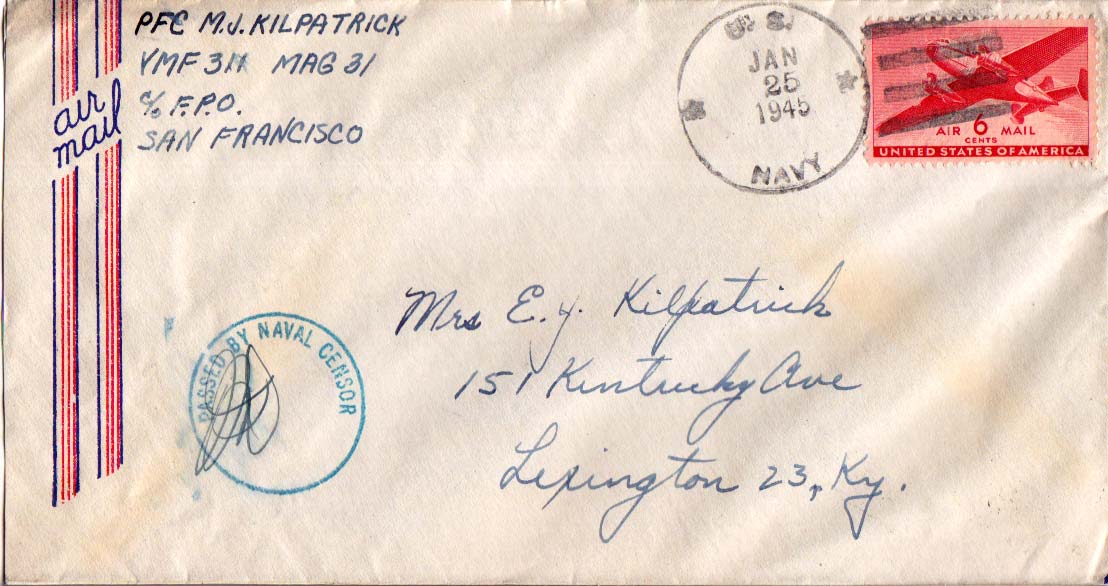 PFC M.J. KILPATRICK
VMF 311 MAG 31
c/o F.P.O.
SAN FRANCISCO
air
mail
U.S.
JAN
25
1945
NAVY
AIR 6 MAIL
CENTS
UNITED STATES OF AMERICA
Mrs E. J. Kilpatrick
151 Kentucky Ave
Lexington 23, Ky.
PASSED BY NAVAL CENSOR